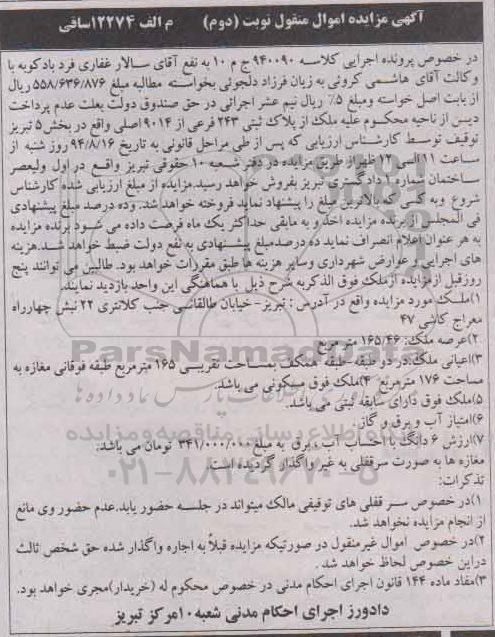 آگهی مزایده اموال منقول نوبت (دوم) م الف ۱۲۲۷۴ساقی
در خصوص پرونده اجرایی کلاسه ۹۴۰۰۹۰ ج م ۱۰ به نفع آقای سالار غفاری فرد بادکوبه با
وکالت آقای هاشمی کروئی به زیان فرزاد دلجوئی بخواسته مطالبه مبلغ ۵۵۸/۶۳۶/۸۷۶ ریال
از بابت اصل خواسته ومبلغ ۵٪ ریال نیم عشر اجرائی در حق صندوق دولت بعلت عدم پرداخت
دیس از ناحیه محکوم علیه ملک از پلاک ثبتی ۲۴۳ فرعی از ۹۰۱۴ اصلی واقع در بخش ۵ تبریز
توقیف توسط کارشناس ارزیابی که پس از طی مراحل قانونی به تاریخ ۹۴/۸/۱۶ روز شنبه از
ساعت ۱۱ الی ۱۲ ظهر از طریق مزایده در دفتر شعبه ۱۰ حقوقی تبریز واقع در اول ولیعصر
ساختمان شماره ۲ دادگستری تبریز بفروش خواهد رسید.مزایده از مبلغ ارزیابی شده کارشناس
شروع وبه کسی که بالاترین مبلغ را پیشنهاد نماید فروخته خواهد شد. وده درصد مبلغ پیشنهادی
فی المجلس از برنده مزایده اخذ و به مابقی حداکثر یک ماه فرصت داده می شود برنده مزایده
به هر عنوان اعلام انصراف نماید ده درصدمبلغ پیشنهادی به نفع دولت ضبط خواهد شد.هزینه
های اجرایی و عوارض شهرداری وسایر هزینه ها طبق مقررات خواهد بود. طالبین می توانند پنج
روزقبل ازمزایده ازملک فوق الذکربه شرح ذیل با هماهنگی این واحد بازدید نمایند.
۱)ملک مورد مزایده واقع در آدرس : تبریز-خیابان طالقانی جنب کلانتری ۲۲ نبش چهارراه
معراج کاشی ۴۷
۲)عرصه ملک: ۱۶۵/۴۶ متر مربع
۳)اعیانی ملک:در دو طبقه-طبقه همکف بمساحت تقریبی ۱۶۵ مترمربع طبقه فوقانی مغازه به
مساحت ۱۷۶ مترمربع ۴)ملک فوق مسکونی می باشد.
۵)ملک فوق دارای سابقه ثبتی می باشد.
۶)امتیاز آب و برق و گاز
۷)ارزش ۶ دانگ با احتساب آب ـ برق به مبلغ ۳۴۱/۰۰۰/۰۰۰ تومان می باشد.
مغازه ها به صورت سرقفلی به غیر واگذار گردیده است.
تذکرات:
۱)در خصوص سر قفلی های توقیفی مالک میتواند در جلسه حضور یابد.عدم حضور وی مانع
از انجام مزایده نخواهد شد.
۲)در خصوص اموال غیرمنقول در صورتیکه مزایده قبلاً به اجاره واگذار شده حق شخص ثالث
دراین خصوص لحاظ خواهد شد .
۳)مفاد ماده ۱۴۴ قانون اجرای احکام مدنی در خصوص محکوم له (خریدار)مجری خواهد بود.
دادورز اجرای احکام مدنی شعبه ۱۰مرکز تبریز
ParsNamadData
۰۲۱-۸۸۳۴۹۶۷۰-۵